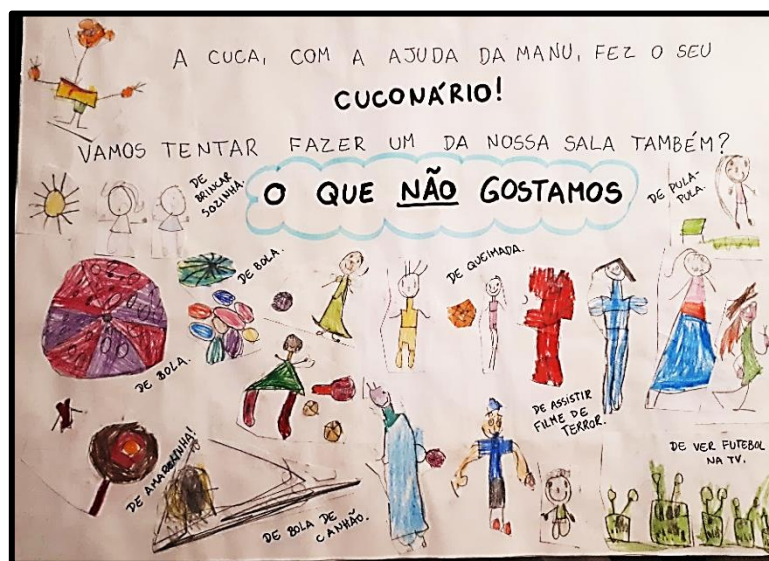 A CUCA, COM A AJUDA DA MANU, FEZ O SEU
CUCONÁRIO!
VAMOS TENTAR FAZER UM DA NOSSA SALA TAMBÉM?
O QUE NÃO GOSTAMOS
DE
BRINCAR
SOZINHA.
DE PULA-
PULA.
DE BOLA.
DE QUEIMADA.
DE BOLA.
DE ASSISTIR
FILME DE
TERROR.
DE AMARELINHA!
DE BOLA DE
CANHÃO.
DE VER FUTEBOL
NA TV.